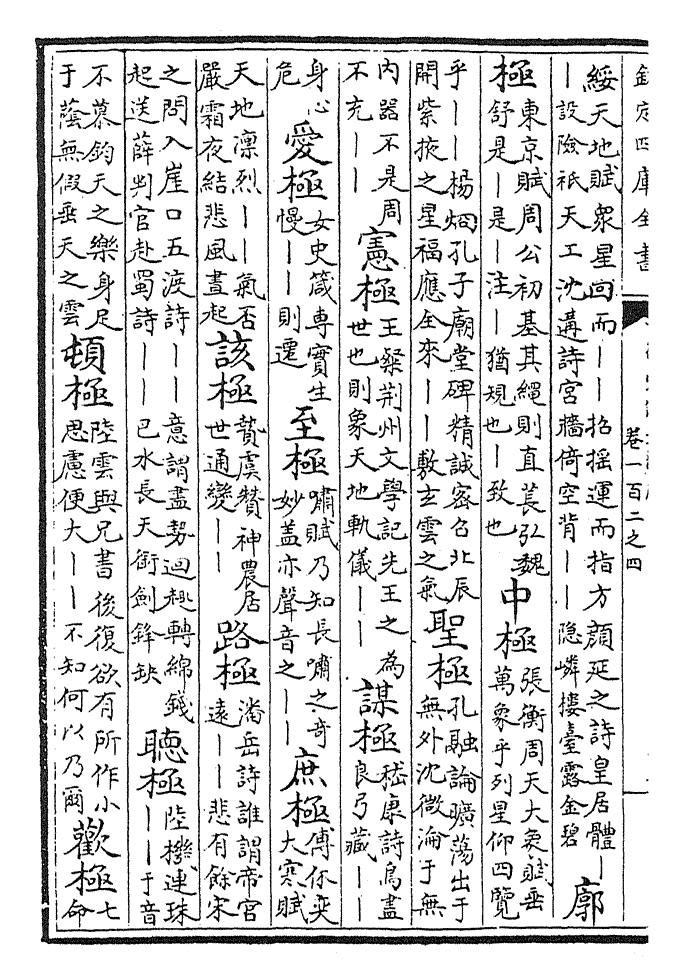 欽定四庫全書
卷一百二之四
綏天地賦衆星回而——招摇運而指方顔延之詩皇居體—
—設險祇天工沈遘詩宫牆倚空背——隠嶙樓臺露金碧
廓
極
東京賦周公初基其繩則直萇弘魏
舒是—是—注—猶規也—致也
中極
張衡周天大象賦垂
萬象乎列星仰四覽
乎——楊烱孔子廟堂碑精誠宻召北辰
開紫掖之星福應全來——敷玄雲之氣
聖極
孔融論曠蕩出于
無外沈微淪于無
内器不是周
不充——
憲極
王粲荆州文學記先王之為
世也則象天地軌儀——
謀極
嵇康詩鳥盡
良弓藏——
身心
危
愛極
女史箴專實生
慢——則遷
至極
嘯賦乃知長嘯之奇
妙盖亦聲音之——
庶極
傅休奕
大寒賦
天地凛烈——氣否
嚴霜夜結悲風晝起
該極
贄虞贊神農居
世通變——
路極
潘岳詩誰謂帝宫
遠——悲有餘宋
之問入崖口五渡詩——意謂盡勢迴趣轉綿錢
起送薛判官赴蜀詩——巳水長天銜劍鋒缺
聽極
陸機連珠
——于音
不慕鈞天之樂身足
于蔭無假垂天之雲
頓極
陸雲與兄書後復欲有所作小
思慮便大——不知何以乃爾
歡極
七
命